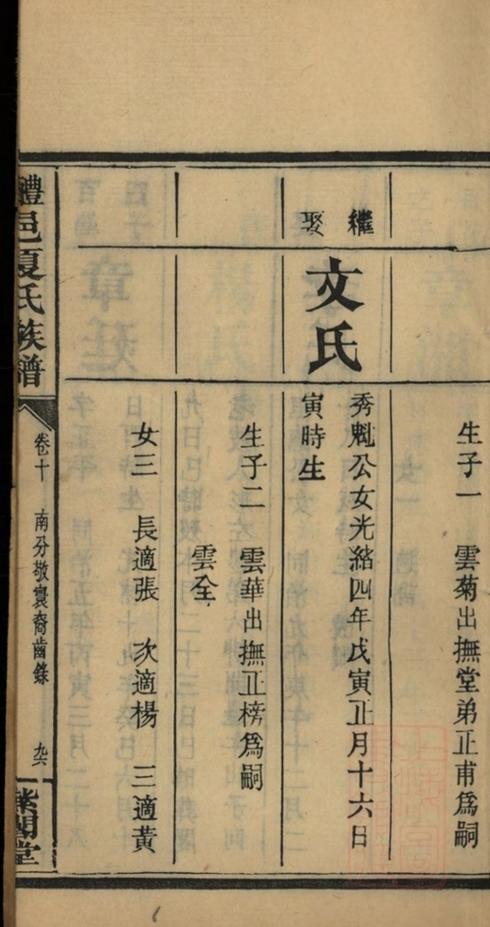 生子一 雲菊出撫堂弟正甫爲嗣
繼娶
文氏
秀魁公女光緒四年戊寅正月十六日
寅時生
生子二 雲華出撫正榜爲嗣
雲全
女三 長適張 次適楊 三適黃
醴邑夏氏族譜
卷十
南分敬裒裔齒錄
九六
紫閣堂